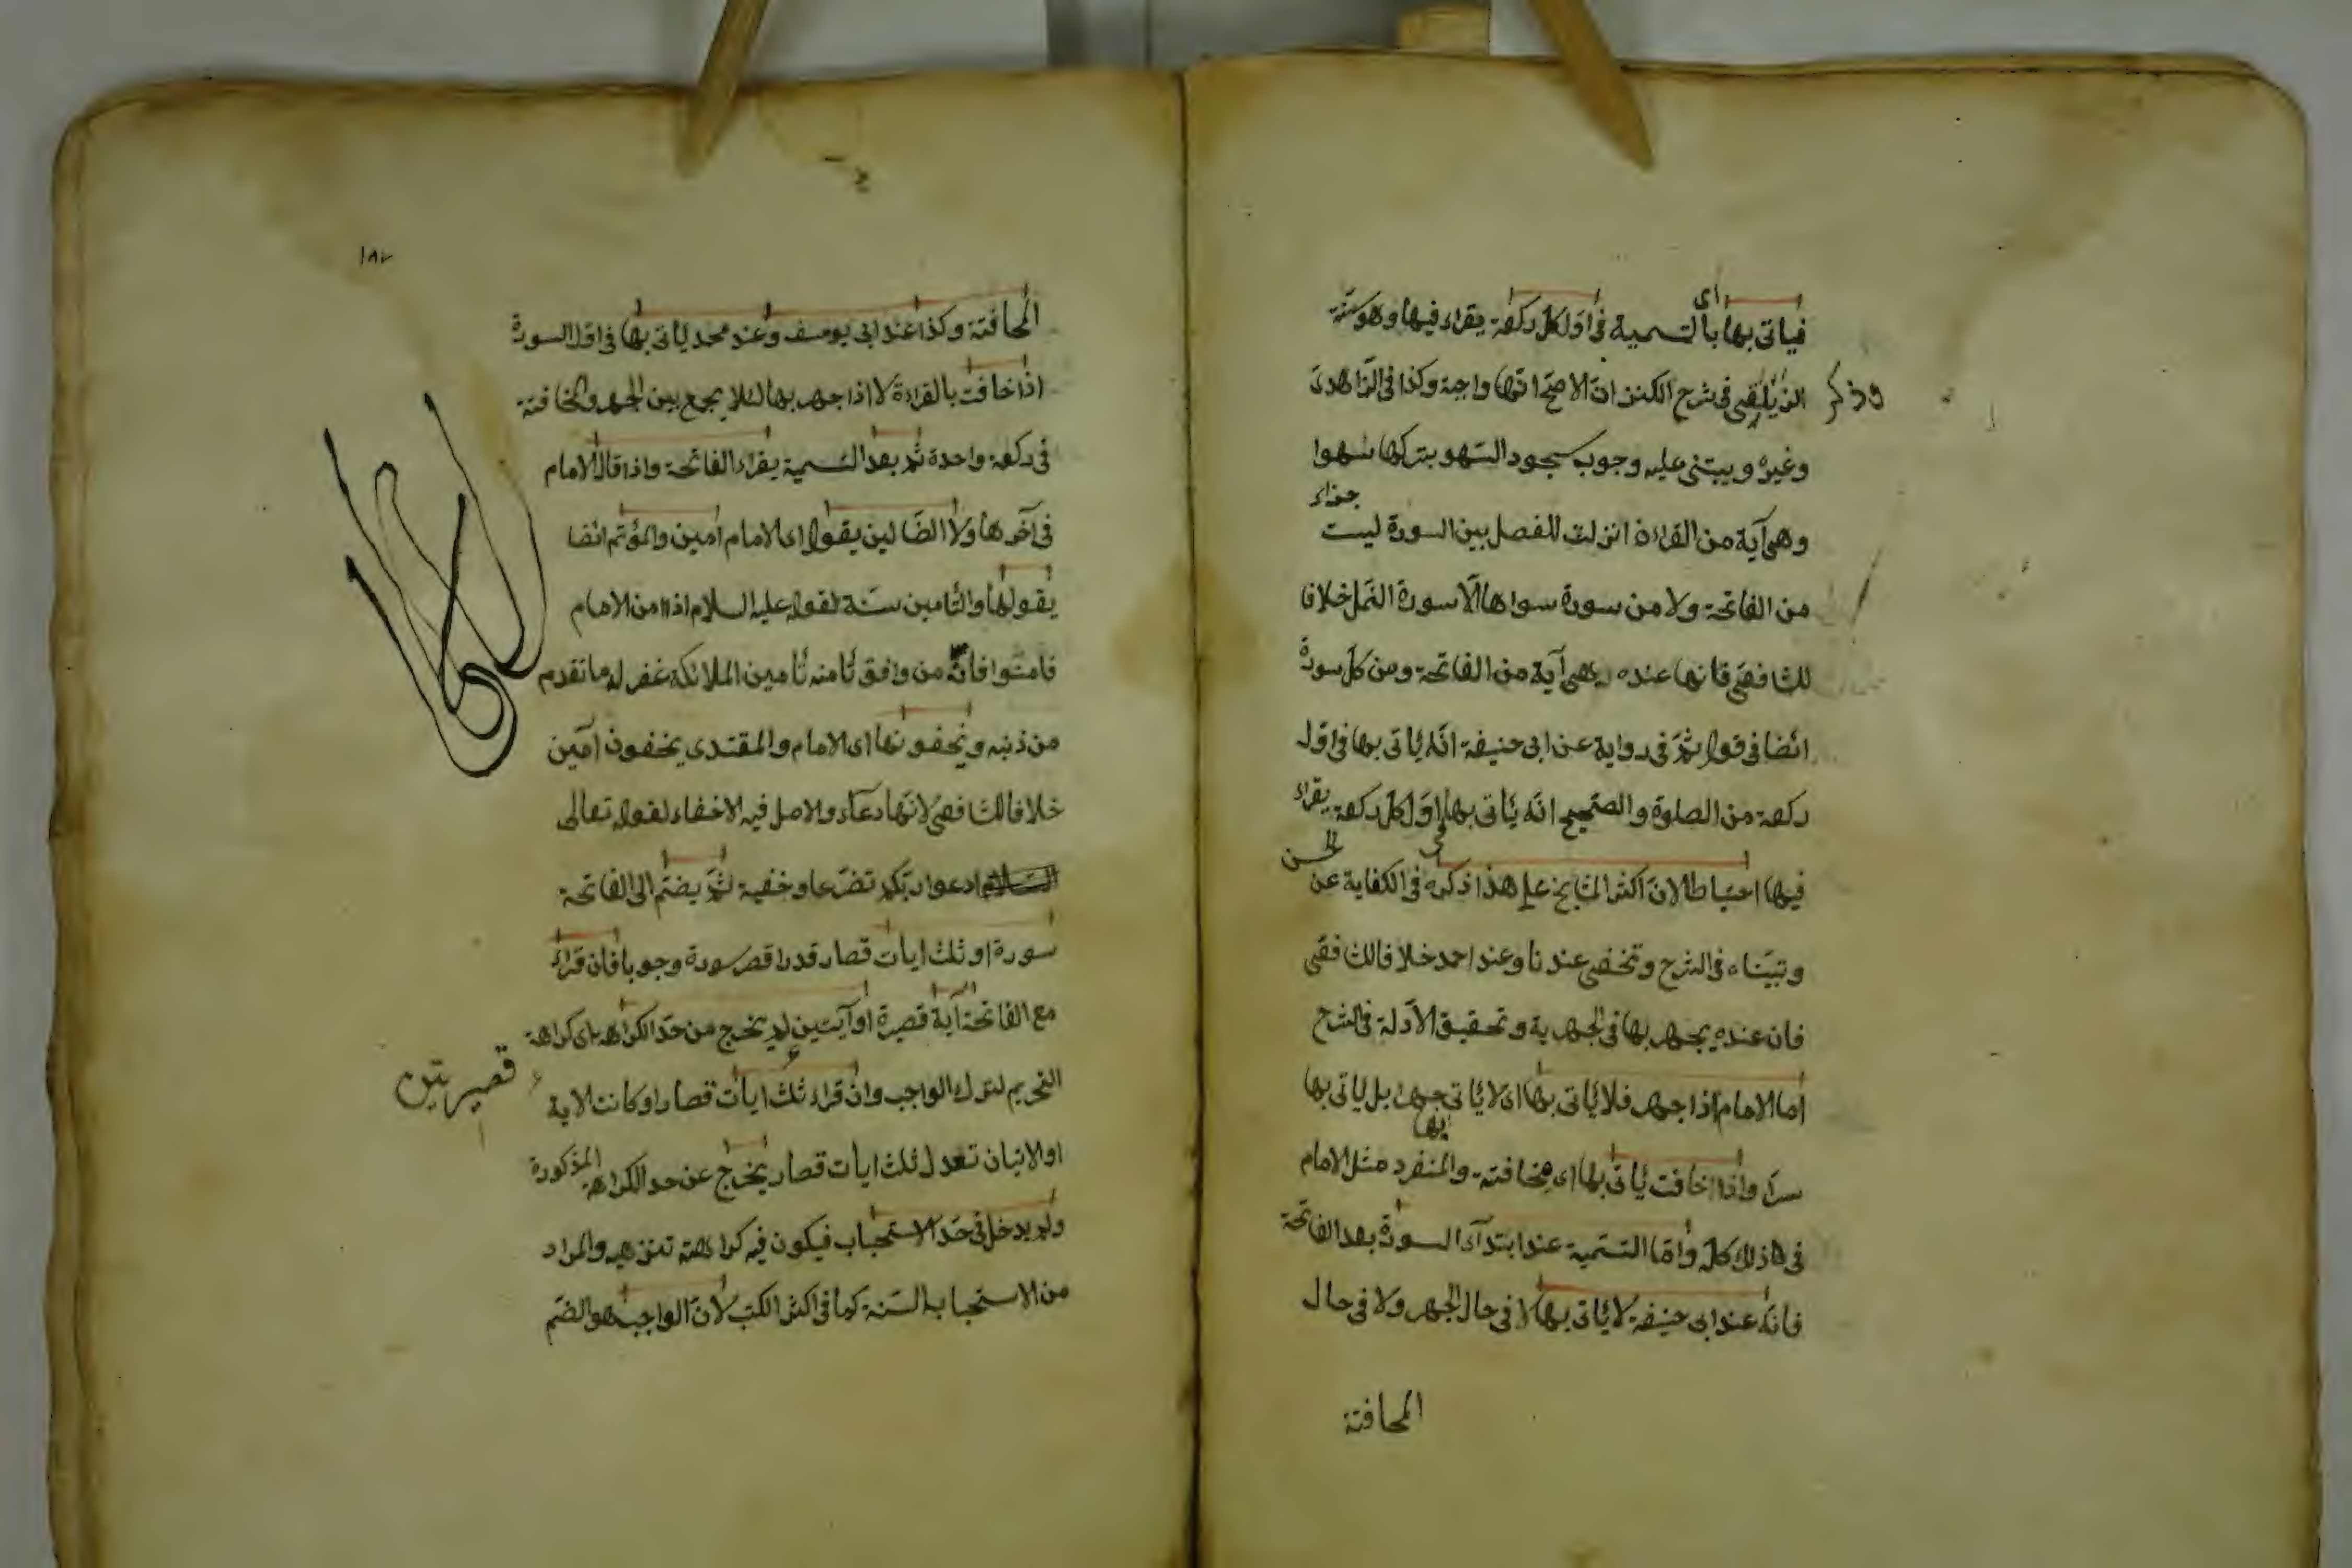 فياتى بها اى بالتسمية فى اول كل ركعة يقراء فيها وهو سنة
وذكر الزيلعى فى شرح الكنز ان الاصح انها واجبة وكذا فى الزاهدى
وغيره ويبتنى عليه وجوب سجود السهو بتركها سهوا
وهى آية من القراءن انزلت للفصل بين السورة ليست جزاء
من الفاتحة ولا من سورة سواها الا سورة النمل خلافا
للشافعى فانها عنده هى آية من الفاتحة ومن كل سورة
ايضا فى قول ثم فى رواية عن ابى حنيفة انه يأتى بها فى اول
ركعة من الصلوة والصحيح انه يأتى بها فى اول كل ركعة يقراء
فيها احتياطا لان اكثر المشايخ على هذا ذكره فى الكفاية عن الحسن
وتبيناه فى الشرح وتخفى عندنا وعند احمد خلافا للشافعى
فان عنده يجهر بها فى الجهرية وتحقيق الادلة فى الشرح
اما الامام اذا جهر فلا يأتى بها اى لا يأتى بها جهرا بل يأتى بها
سرا واذا خافت يأتى بها اى مخافتة والمنفرد مثل الامام
فى ذلك كله واما التسمية عند ابتدآء السورة بعد الفاتحة
فانه عند ابى حنيفة لا يأتى بها لا فى حال الجهر ولا فى حال
المخافتة
١٨٢
المخافتة وكذا عند ابى يوسف وعند محمد يأتى بها فى اول السورة
اذا خافت بالقراءة لا اذا جهر بها لئلا يجمع بين الجهر والمخافتة
فى ركعة واحدة ثم بعد التسمية يقراء الفاتحة واذا قال الامام
فى آخرها ولا الضالين يقول اى الامام آمين والمؤتم ايضا
يقولها والتأمين سنة لقوله عليه السلام اذا امن الامام
فامنوا فانه من وافق تأمينه تأمين الملائكة غفر له ما تقدم
من ذنبه ويخفونها اى الامام والمقتدى يخفون آمين
خلافا للشافعى لانها دعاء والاصل فيه الاخفاء لقوله تعالى
ادعوا ربكم تضرعا وخفية ثم يضم الى الفاتحة
سورة او ثلث ايات قصار قدر اقصر سورة وجوبا فان قراء
مع الفاتحة آية قصيرة او آيتين قصيرتين لم يخرج من حد الكراهة اى كراهة
التحريم لترك الواجب وان قراء ثلث ايات قصار او كانت الاية
او الايتان تعدل ثلث ايات قصار يخرج عن حد الكراهة المذكورة
ولم يدخل فى حد الاستحباب فيكون فيه كراهته تنزيهه والمراد
من الاستحباب السنة كما فى اكثر الكتب لان الواجب هو الضم